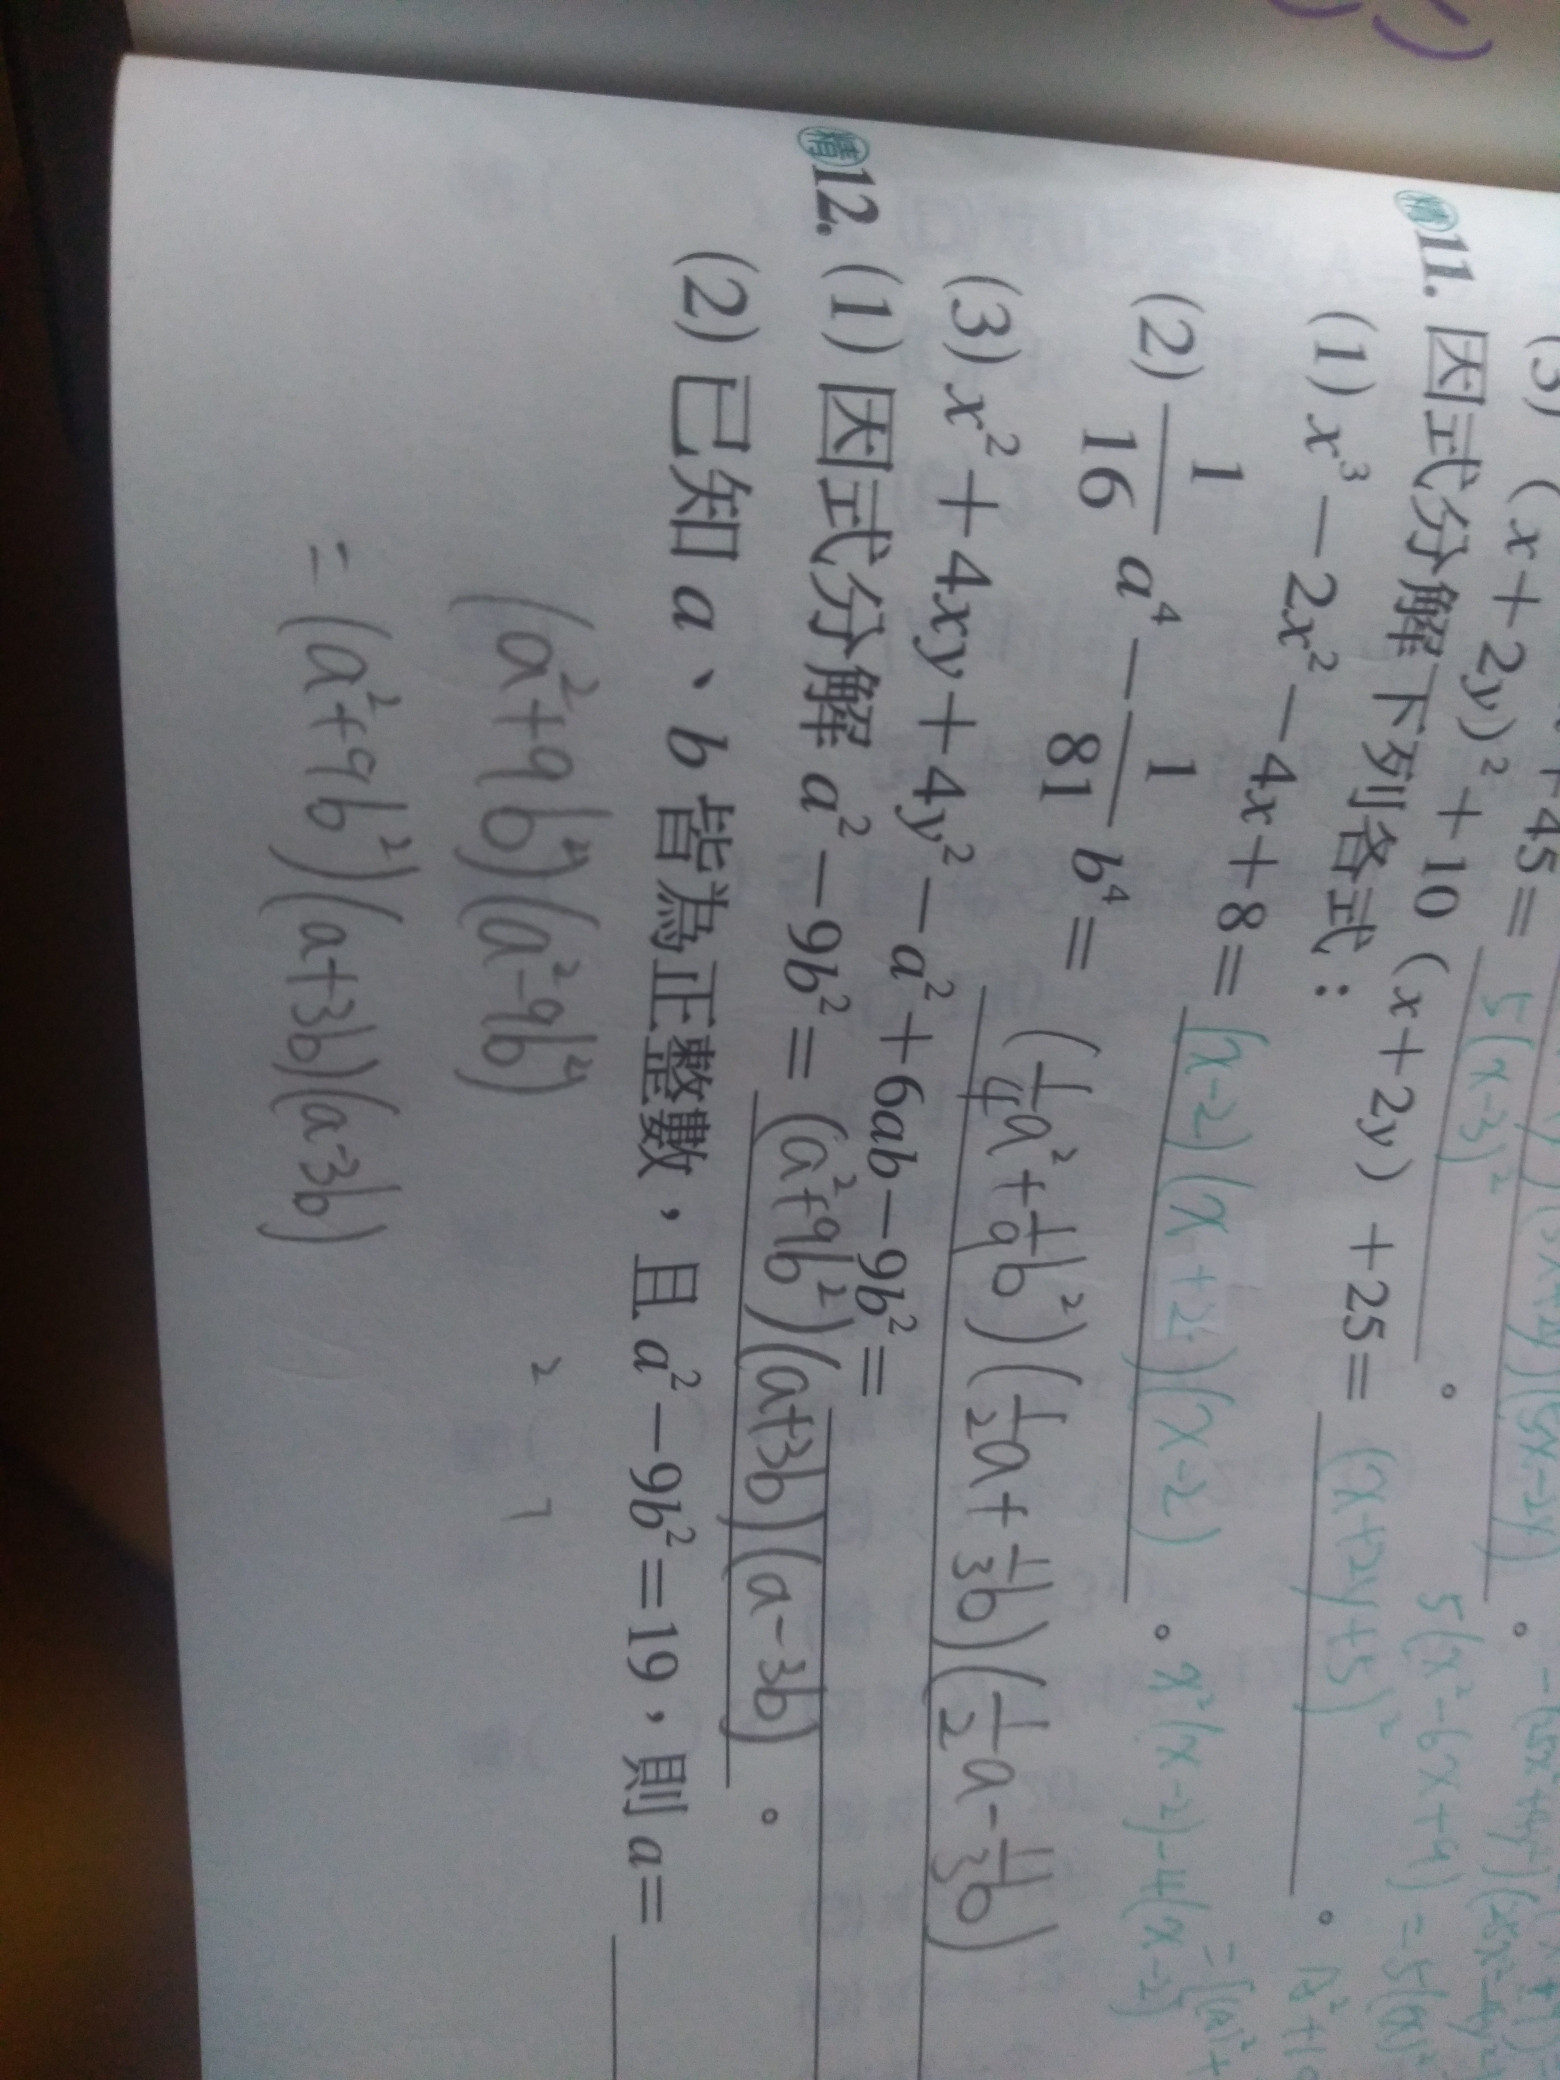 +45= 5(x-3)²
5(x²-6x+9)=5(x)²
(3) (x+2y)²+10(x+2y)+25= (x+2y+5)²
精11. 因式分解下列各式：
(1) x³-2x²-4x+8= (x-2)(x+2)(x-2) 。 x²(x-2)-4(x-2)
(2) 1/16 a⁴-1/81 b⁴= (1/4a²+1/9b²)(1/2a+1/3b)(1/2a-1/3b)
(3) x²+4xy+4y²-a²+6ab-9b²=
精12. (1) 因式分解 a²-9b²= (a²+9b²)(a+3b)(a-3b) 。
(2) 已知 a、b 皆為正整數，且 a²-9b²=19，則 a=
(a²+9b²)(a²-9b²)
=(a²+9b²)(a+3b)(a-3b)